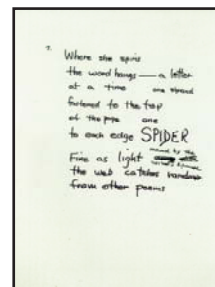 7.
Where she spins
the word hangs — a letter
at a time one strand
fastened to the top
of the page one
to each edge SPIDER
Fine as light moved by the
the web catches random
from other poems